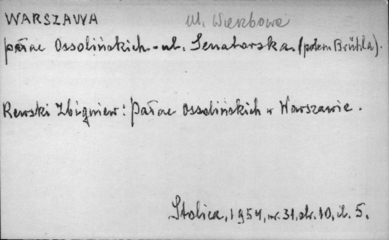 WARSZAWA ul. Wierzbowa
pałac Ossolińskich - ul. Senatorska (potem Brühla).
Rewski Zbigniew: Pałac Ossolińskich w Warszawie.
Stolica, 1954, nr. 31, str. 10, il. 5.